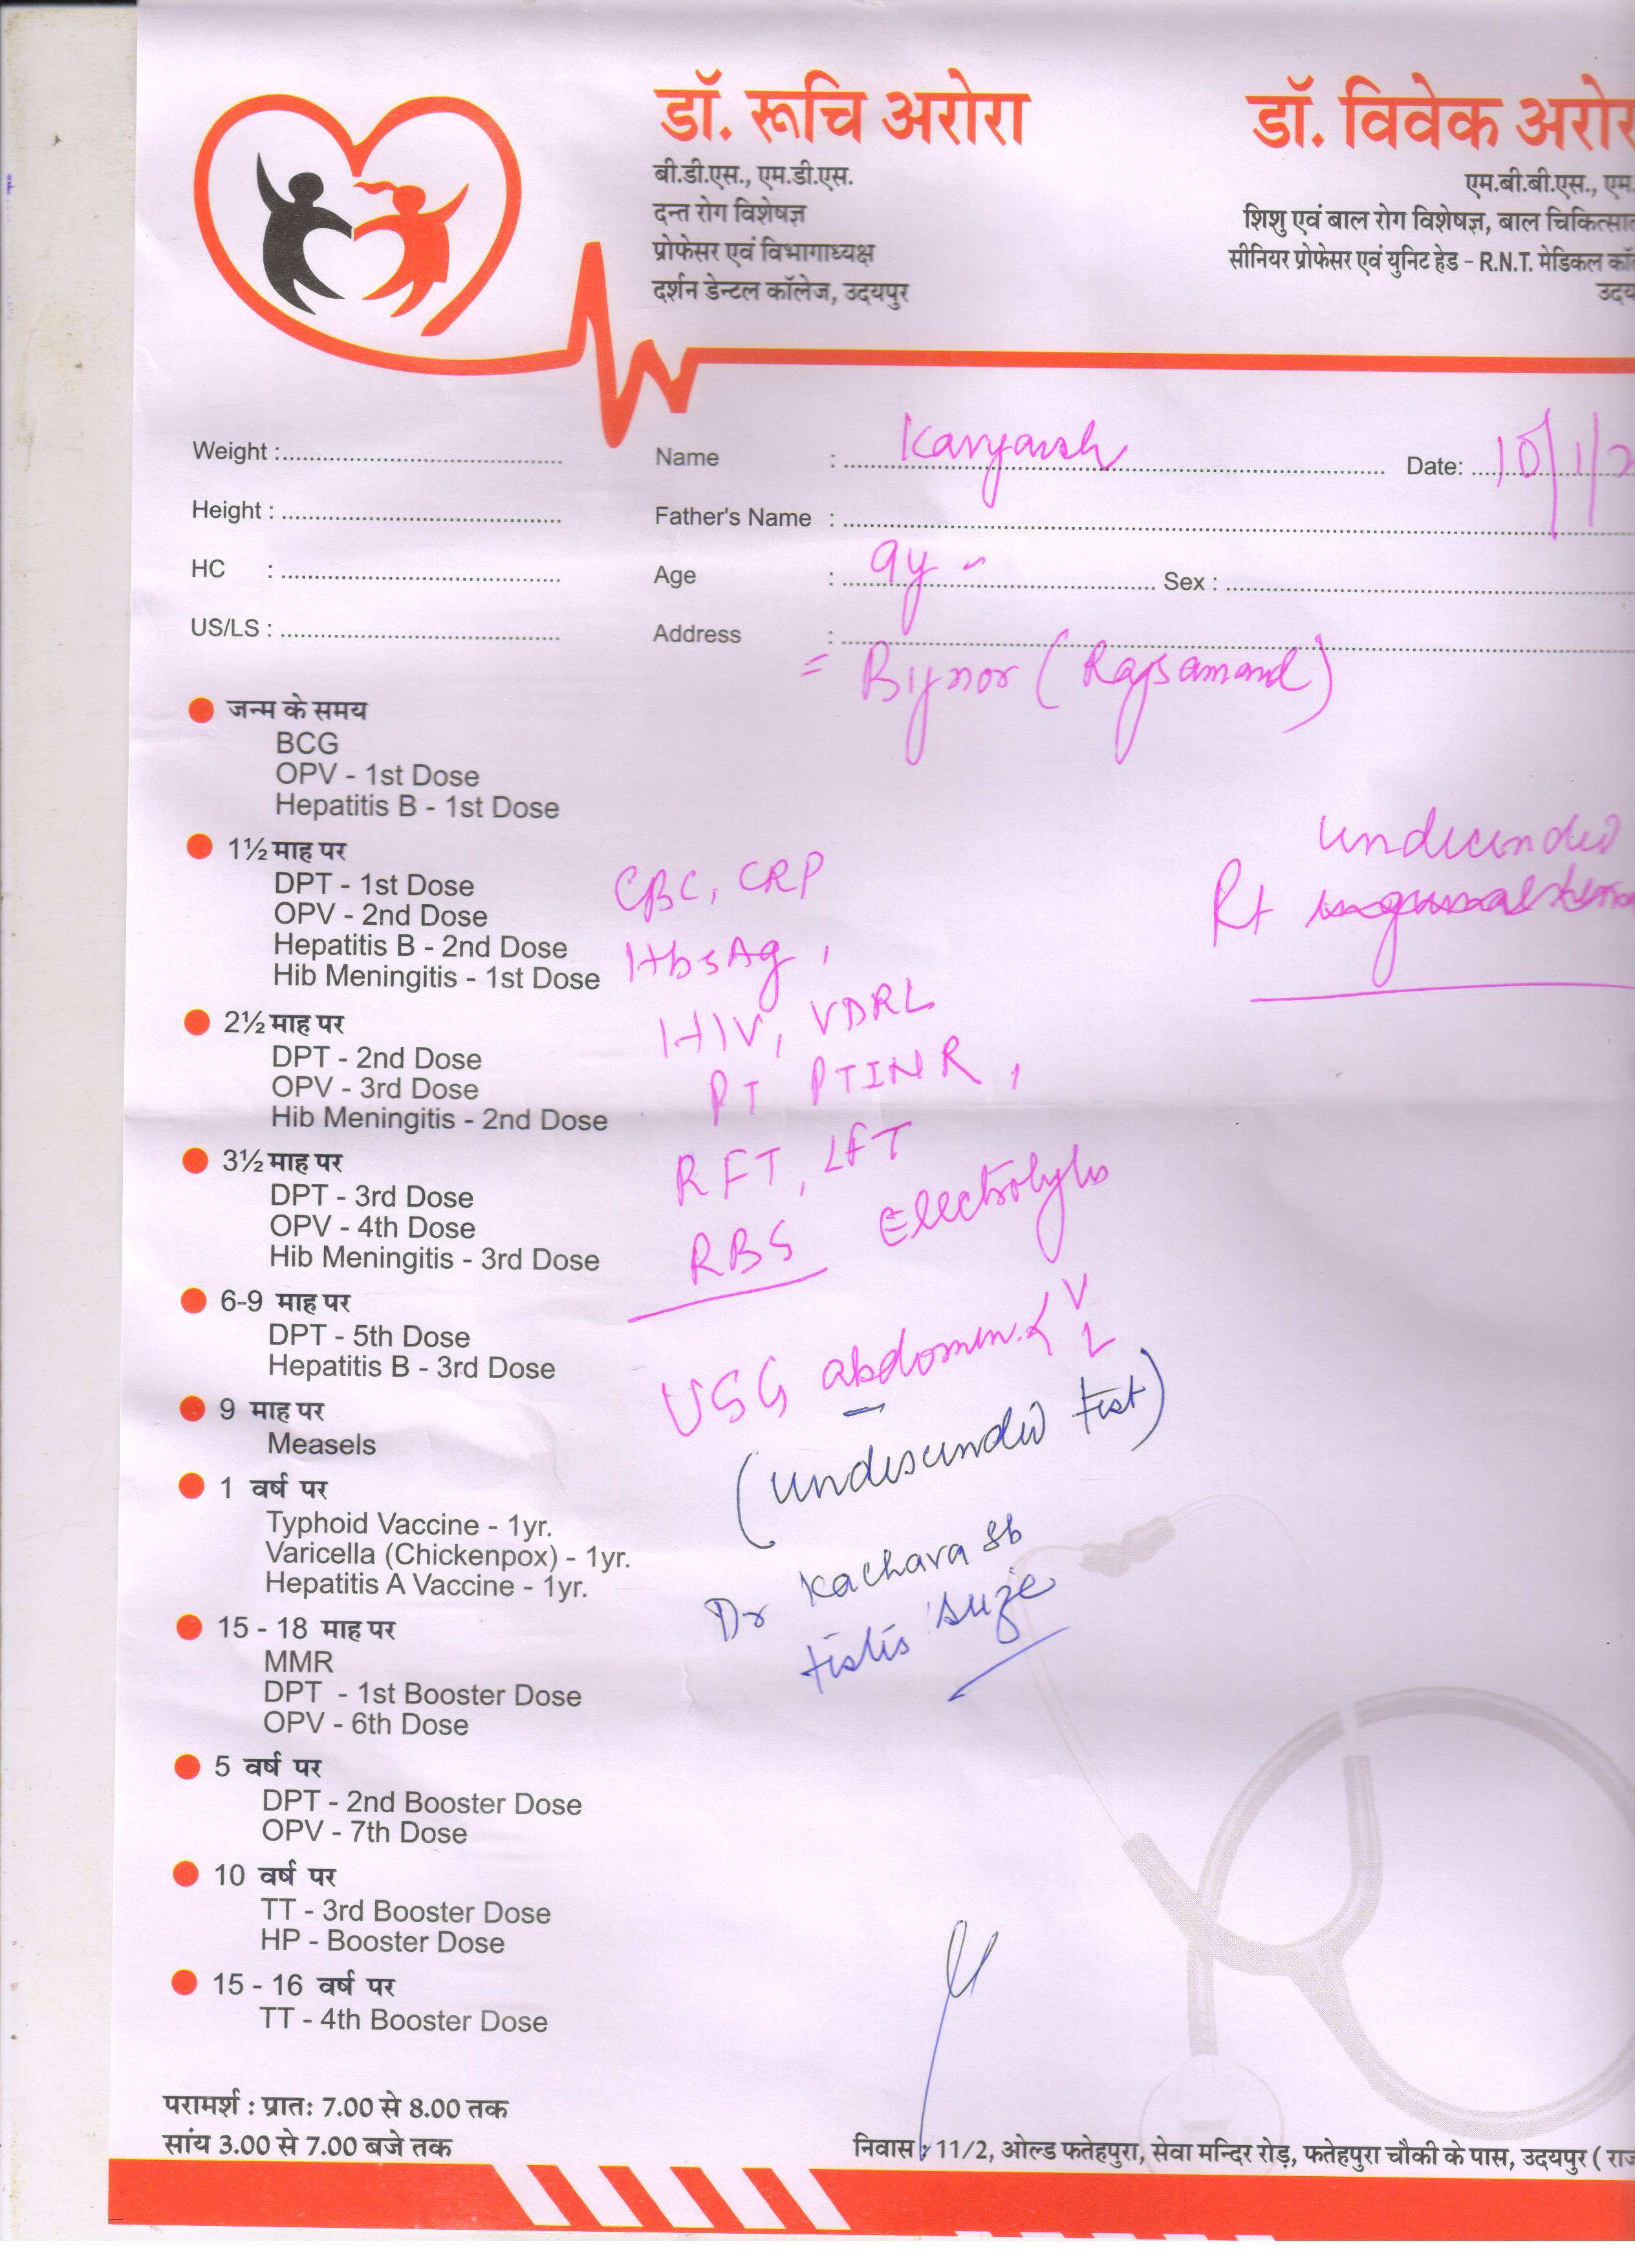 डॉ. रूचि अरोरा
बी.डी.एस., एम.डी.एस.
दन्त रोग विशेषज्ञ
प्रोफेसर एवं विभागाध्यक्ष
दर्शन डेन्टल कॉलेज, उदयपुर
डॉ. विवेक अरोर
एम.बी.बी.एस., एम.
शिशु एवं बाल रोग विशेषज्ञ, बाल चिकित्सा
सीनियर प्रोफेसर एवं युनिट हेड - R.N.T. मेडिकल कॉ
उदय
Weight :
Name : Kavyansh
Date: 10/1/2
Height :
Father's Name :
HC :
Age : 9y
Sex :
US/LS :
Address :
= Bijnor (Rajsamand)
जन्म के समय
BCG
OPV - 1st Dose
Hepatitis B - 1st Dose
1½ माह पर
DPT - 1st Dose
OPV - 2nd Dose
Hepatitis B - 2nd Dose
Hib Meningitis - 1st Dose
2½ माह पर
DPT - 2nd Dose
OPV - 3rd Dose
Hib Meningitis - 2nd Dose
3½ माह पर
DPT - 3rd Dose
OPV - 4th Dose
Hib Meningitis - 3rd Dose
6-9 माह पर
DPT - 5th Dose
Hepatitis B - 3rd Dose
9 माह पर
Measels
1 वर्ष पर
Typhoid Vaccine - 1yr.
Varicella (Chickenpox) - 1yr.
Hepatitis A Vaccine - 1yr.
15 - 18 माह पर
MMR
DPT - 1st Booster Dose
OPV - 6th Dose
5 वर्ष पर
DPT - 2nd Booster Dose
OPV - 7th Dose
10 वर्ष पर
TT - 3rd Booster Dose
HP - Booster Dose
15 - 16 वर्ष पर
TT - 4th Booster Dose
undescended
Rt inguinal
CBC, CRP
HbsAg,
HIV, VDRL
PT PTINR,
RFT, LFT
RBS Electrolyts
USG abdomen
(undescended test)
Dr Kachara Sb
tistis size
परामर्श : प्रातः 7.00 से 8.00 तक
सांय 3.00 से 7.00 बजे तक
निवास : 11/2, ओल्ड फतेहपुरा, सेवा मन्दिर रोड़, फतेहपुरा चौकी के पास, उदयपुर ( राज